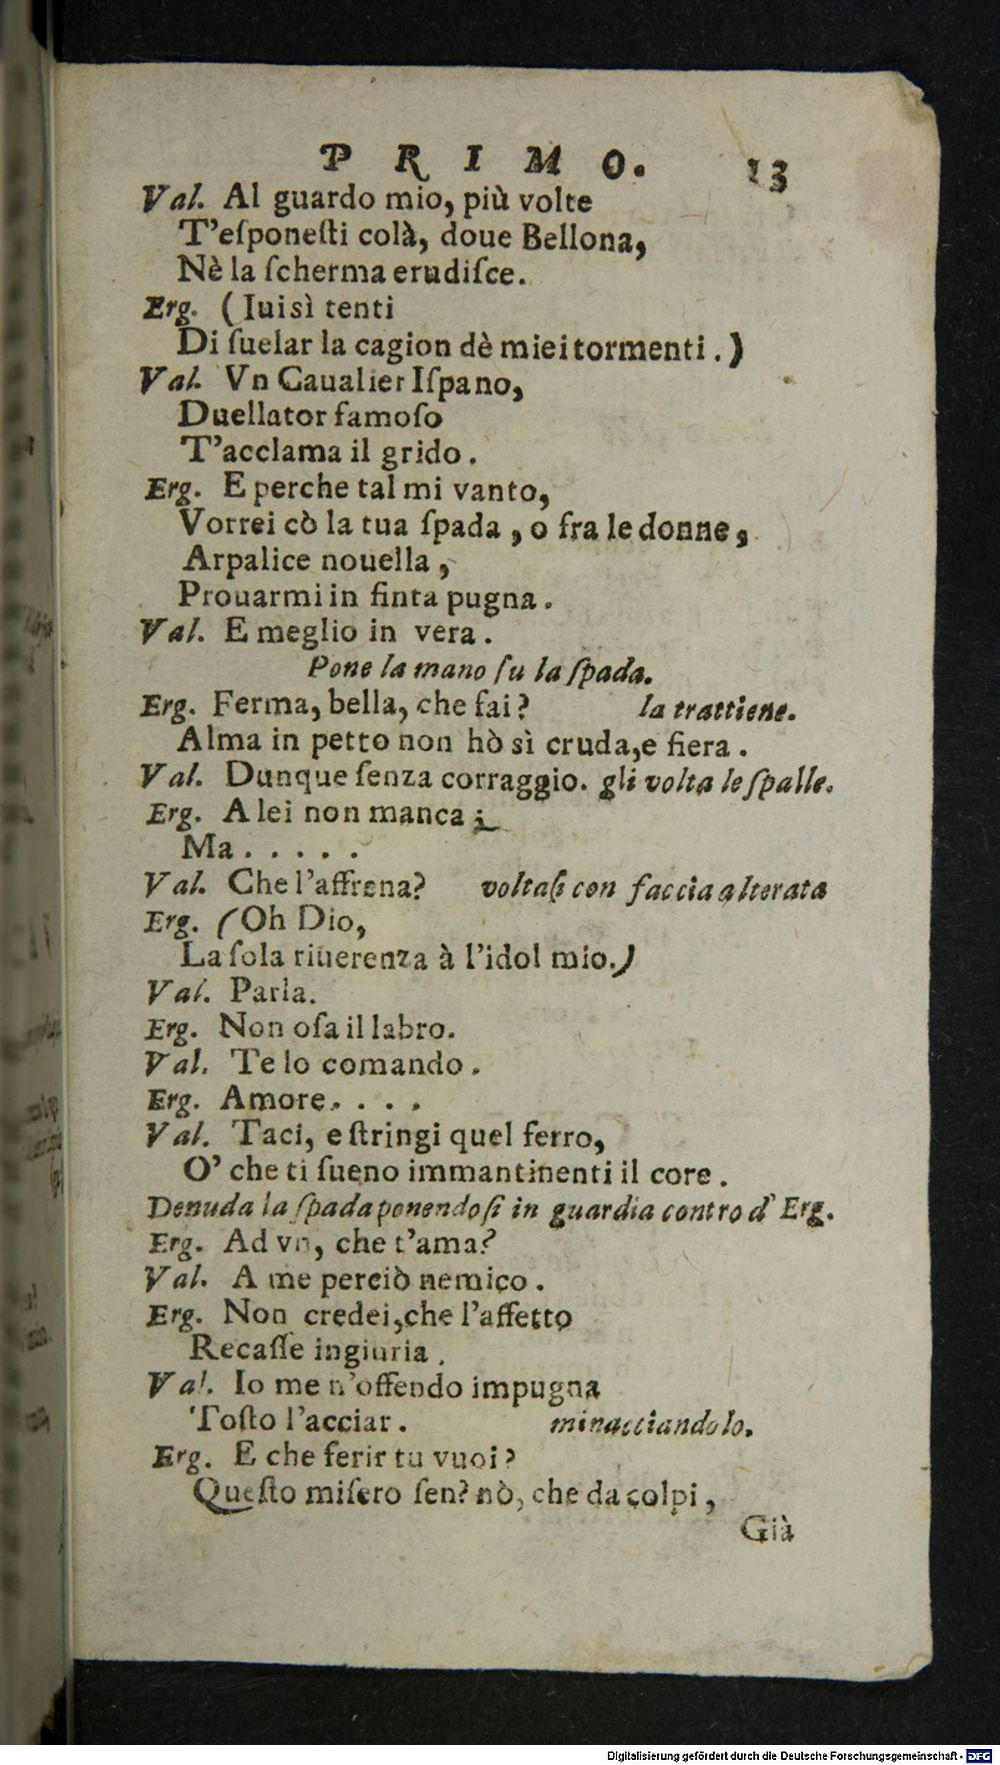 PRIMO. 13
Val. Al guardo mio, più volte
T'eſponeſti colà, doue Bellona,
Nè la ſcherma erudiſce.
Erg. (Iuisì tenti
Di ſuelar la cagion dè miei tormenti.)
Val. Vn Caualier Iſpano,
Duellator famoſo
T'acclama il grido.
Erg. E perche tal mi vanto,
Vorrei cò la tua ſpada, o fra le donne,
Arpalice nouella,
Prouarmi in finta pugna.
Val. E meglio in vera.
Pone la mano ſu la ſpada.
Erg. Ferma, bella, che fai? la trattiene.
Alma in petto non hò sì cruda, e fiera.
Val. Dunque ſenza corraggio. gli volta le ſpalle.
Erg. A lei non manca;
Ma.....
Val. Che l'affrena? voltaſi con faccia alterata
Erg. (Oh Dio,
La ſola riuerenza à l'idol mio.)
Val. Parla.
Erg. Non oſa il labro.
Val. Te lo comando.
Erg. Amore....
Val. Taci, e ſtringi quel ferro,
O' che ti ſueno immantinenti il core.
Denuda la ſpada ponendoſi in guardia contro d' Erg.
Erg. Ad vn, che t'ama?
Val. A me perciò nemico.
Erg. Non credei, che l'affetto
Recaſſe ingiuria.
Val. Io me n'offendo impugna
Toſto l'acciar. minacciandolo.
Erg. E che ferir tu vuoi?
Queſto miſero ſen? nò, che da colpi,
Già
Digitalisierung gefördert durch die Deutsche Forschungsgemeinschaft - DFG